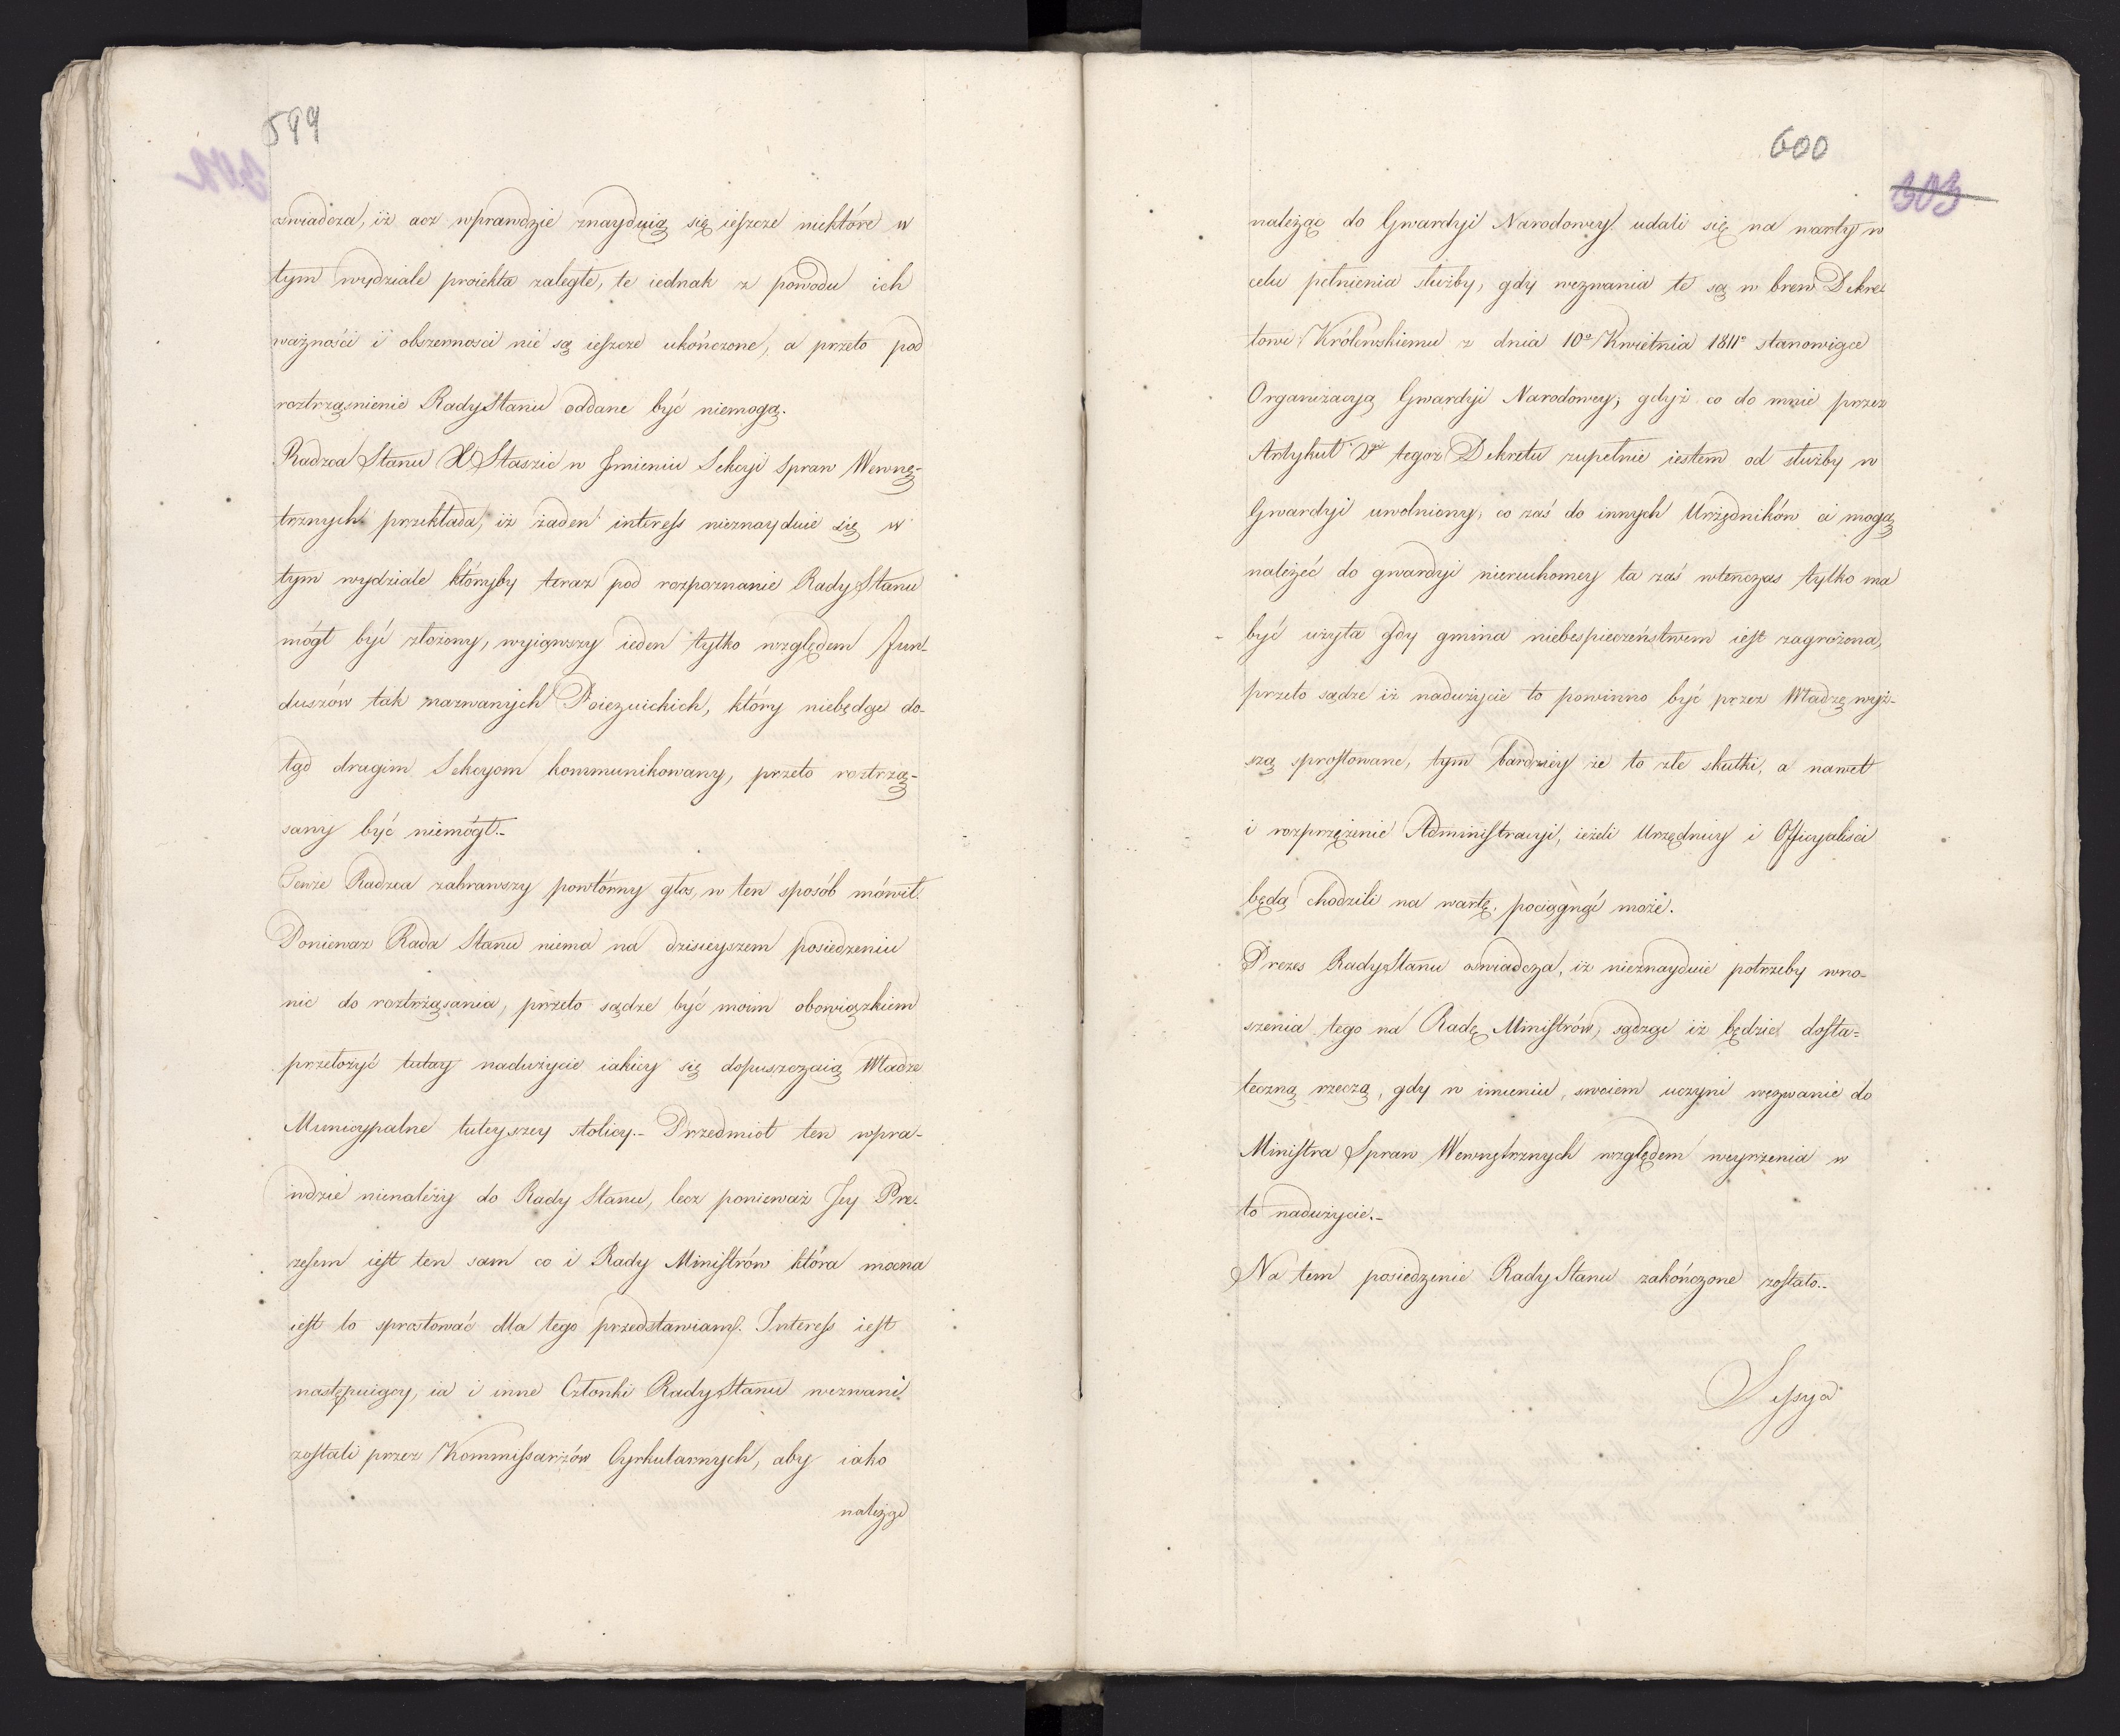 599
oswiadcza, iż acz wprawdzie znayduią się ieszcze niektóre w
tym wydziale proiekta zaległe, te iednak z powodu ich
ważności i obszerności nie są ieszcze ukończone, a przeto pod
roztrząśnienie Rady Stanu oddane być niemogą.
Radzca Stanu X Staszic w Jmieniu Sekcyi spraw Wewnę-
trznych przekłada, iż żaden interess nieznayduie się w
tym wydziale któryby teraz pod rozpoznanie Rady Stanu
mógł być złożony, wyiąwszy ieden tylko względem fun-
duszów tak nazwanych Poiezuickich, który niebędąc do-
tąd drugim Sekcyom kommunikowany, przeto roztrzą-
sany być niemógł.-
Tenże Radzca zabrawszy powtórny głos, w ten sposób mówił.
Ponieważ Rada Stanu niema na dzisieyszem posiedzeniu
nic do roztrząsania, przeto sądze być moim obowiązkiem
przełożyć tutay nadużycie iakiey się dopuszczaią Władze
Municypalne tuteyszey stolicy.- Przedmiot ten wpra-
wdzie nienależy do Rady Stanu, lecz ponieważ Jey Pre-
zesem iest ten sam co i Rady Ministrów która mocna
iest to sprostować dla tego przedstawiam. Interess iest
następuiący, ia i inne Członki Rady Stanu wezwani
zostali przez Kommissarzów Cyrkularnych, aby iako
należąc
600
303
należąc do Gwardyi Narodowey udali się na warty w
celu pełnienia służby, gdy wezwania te są w brew Dekre-
towi Królewskiemu z dnia 10º Kwietnia 1811º stanowiące
Organizacyą Gwardyi Narodowey, gdyż co do mnie przez
Artykuł Vty tegoż Dekretu zupełnie iestem od służby w
Gwardyi uwolniony, co zaś do innych Urzędników ci mogą
należéć do gwardyi nieruchomey ta zaś wtenczas tylko ma
być użyta gdy gmina niebespieczeństwem iest zagrożona,
przeto sądze iż nadużycie to powinno być przez Władzę wyż-
szą sprostowane, tym bardziey że to złe skutki, a nawet
i rozprzężenie Administracyi, ieżeli Urzędnicy i Officyaliści
będą chodzili na wartę, pociągnąć może.
Prezes Rady Stanu oświadcza, iż nieznayduie potrzeby wno-
szenia tego na Radę Ministrów, sądząc iż będzie dosta-
teczną rzeczą, gdy w imieniu swoiem uczyni wezwanie do
Ministra Spraw Wewnętrznych względem weyrzenia w
to nadużycie.-
Na tem posiedzenie Rady Stanu zakończone zostało.-
Sessya